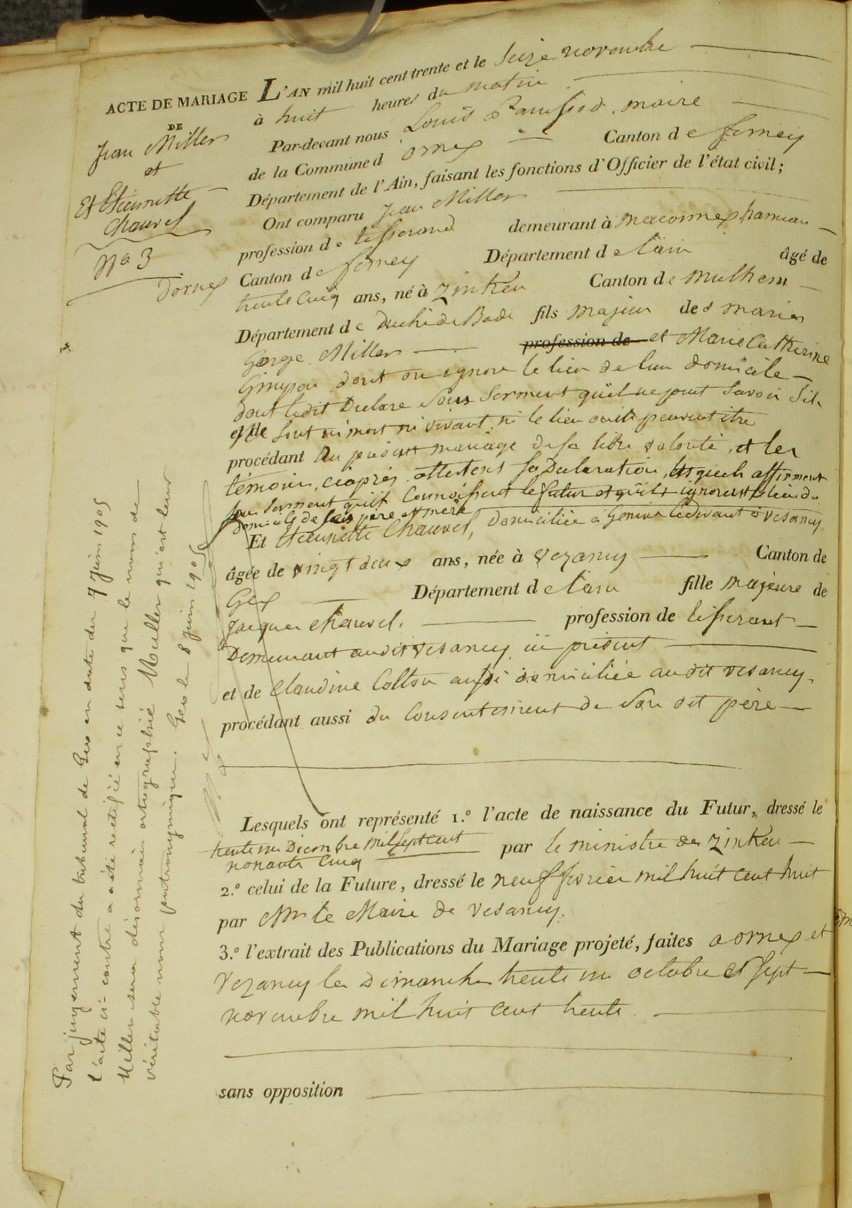 ACTE DE MARIAGE
DE
Jean Miller
et
Et Etiennette
Chauvet
No 3
Dornex
L'AN mil huit cent trente et le seize novembre
à huit heures du matin
Par-devant nous Louis maire
de la Commune d'ornex Canton de ferney
Département de l'Ain, faisant les fonctions d'Officier de l'état civil;
Ont comparu Jean Miller
profession de tisserand demeurant à maconnex hameau
Canton de ferney Département de l'ain âgé de
trente cinq ans, né à Zinken Canton de Mulhem
Département de Duché de Bade fils majeur des maries
George Miller profession de et Marie Catherine
dont on ignore le lieu de leur domicile
dont ledit Declare sous serment qu'il ne peut savoir s'il
sont ni mort ni vivant, ni le lieu ou ils peuvent être
procédant au présent mariage de sa libre volonté, et les
témoins, ciaprès, attestent sa Declaration, lesquels affirment
par serment qu'ils connoissent le futur et qu'ils ignorent le lieu du
domicile de ses père et mère
Et Etiennette Chauvet, domiciliée à Genève cidevant à Vesancy
âgée de vingt deux ans, née à Vezancy Canton de
Gex Département de l'ain fille majeure de
Jacques Chauvet profession de tisserant
Demeurant audit Vesancy, ici présent
et de Claudine Cotton aussi domiciliée audit Vesancy,
procédant aussi du Consentement de son dit père
Lesquels ont représenté 1.º l'acte de naissance du Futur, dressé le
trente un Dicembre mil sept cent
nonante cinq par le ministre de Zinken
2.º celui de la Future, dressé le neuf fevrier mil huit cent huit
par Mr le Maire de Vesancy.
3.º l'extrait des Publications du Mariage projeté, faites a ornex et
Vezancy les Dimanche trente un octobre et sept
novembre mil huit cent trente.
sans opposition
Par jugement du tribunal de Gex en date du 7 juin 1905
l'acte ci-contre a été rectifié en ce sens que le nom de
Miller sera désormais ortographié Muller qui est leur
véritable nom patronymique. Gex le 8 juin 1905